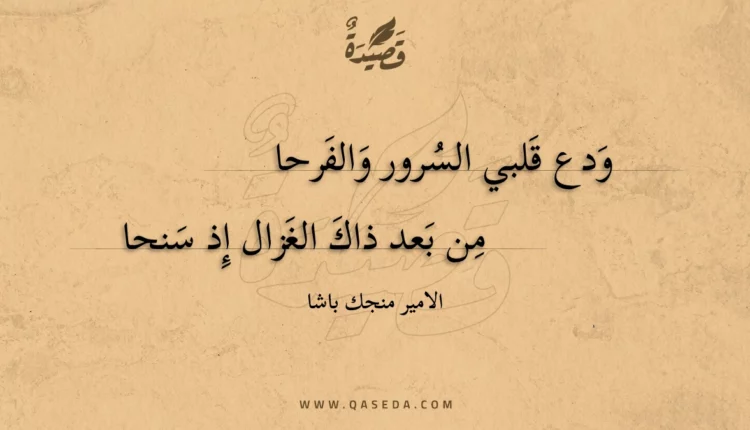 قَصِيْدَةٌ
وَدع قَلبي السُرور وَالفَرحا
مِن بَعد ذاكَ الغَزال إِذ سَنحا
الامير منجك باشا
WWW.QASEDA.COM